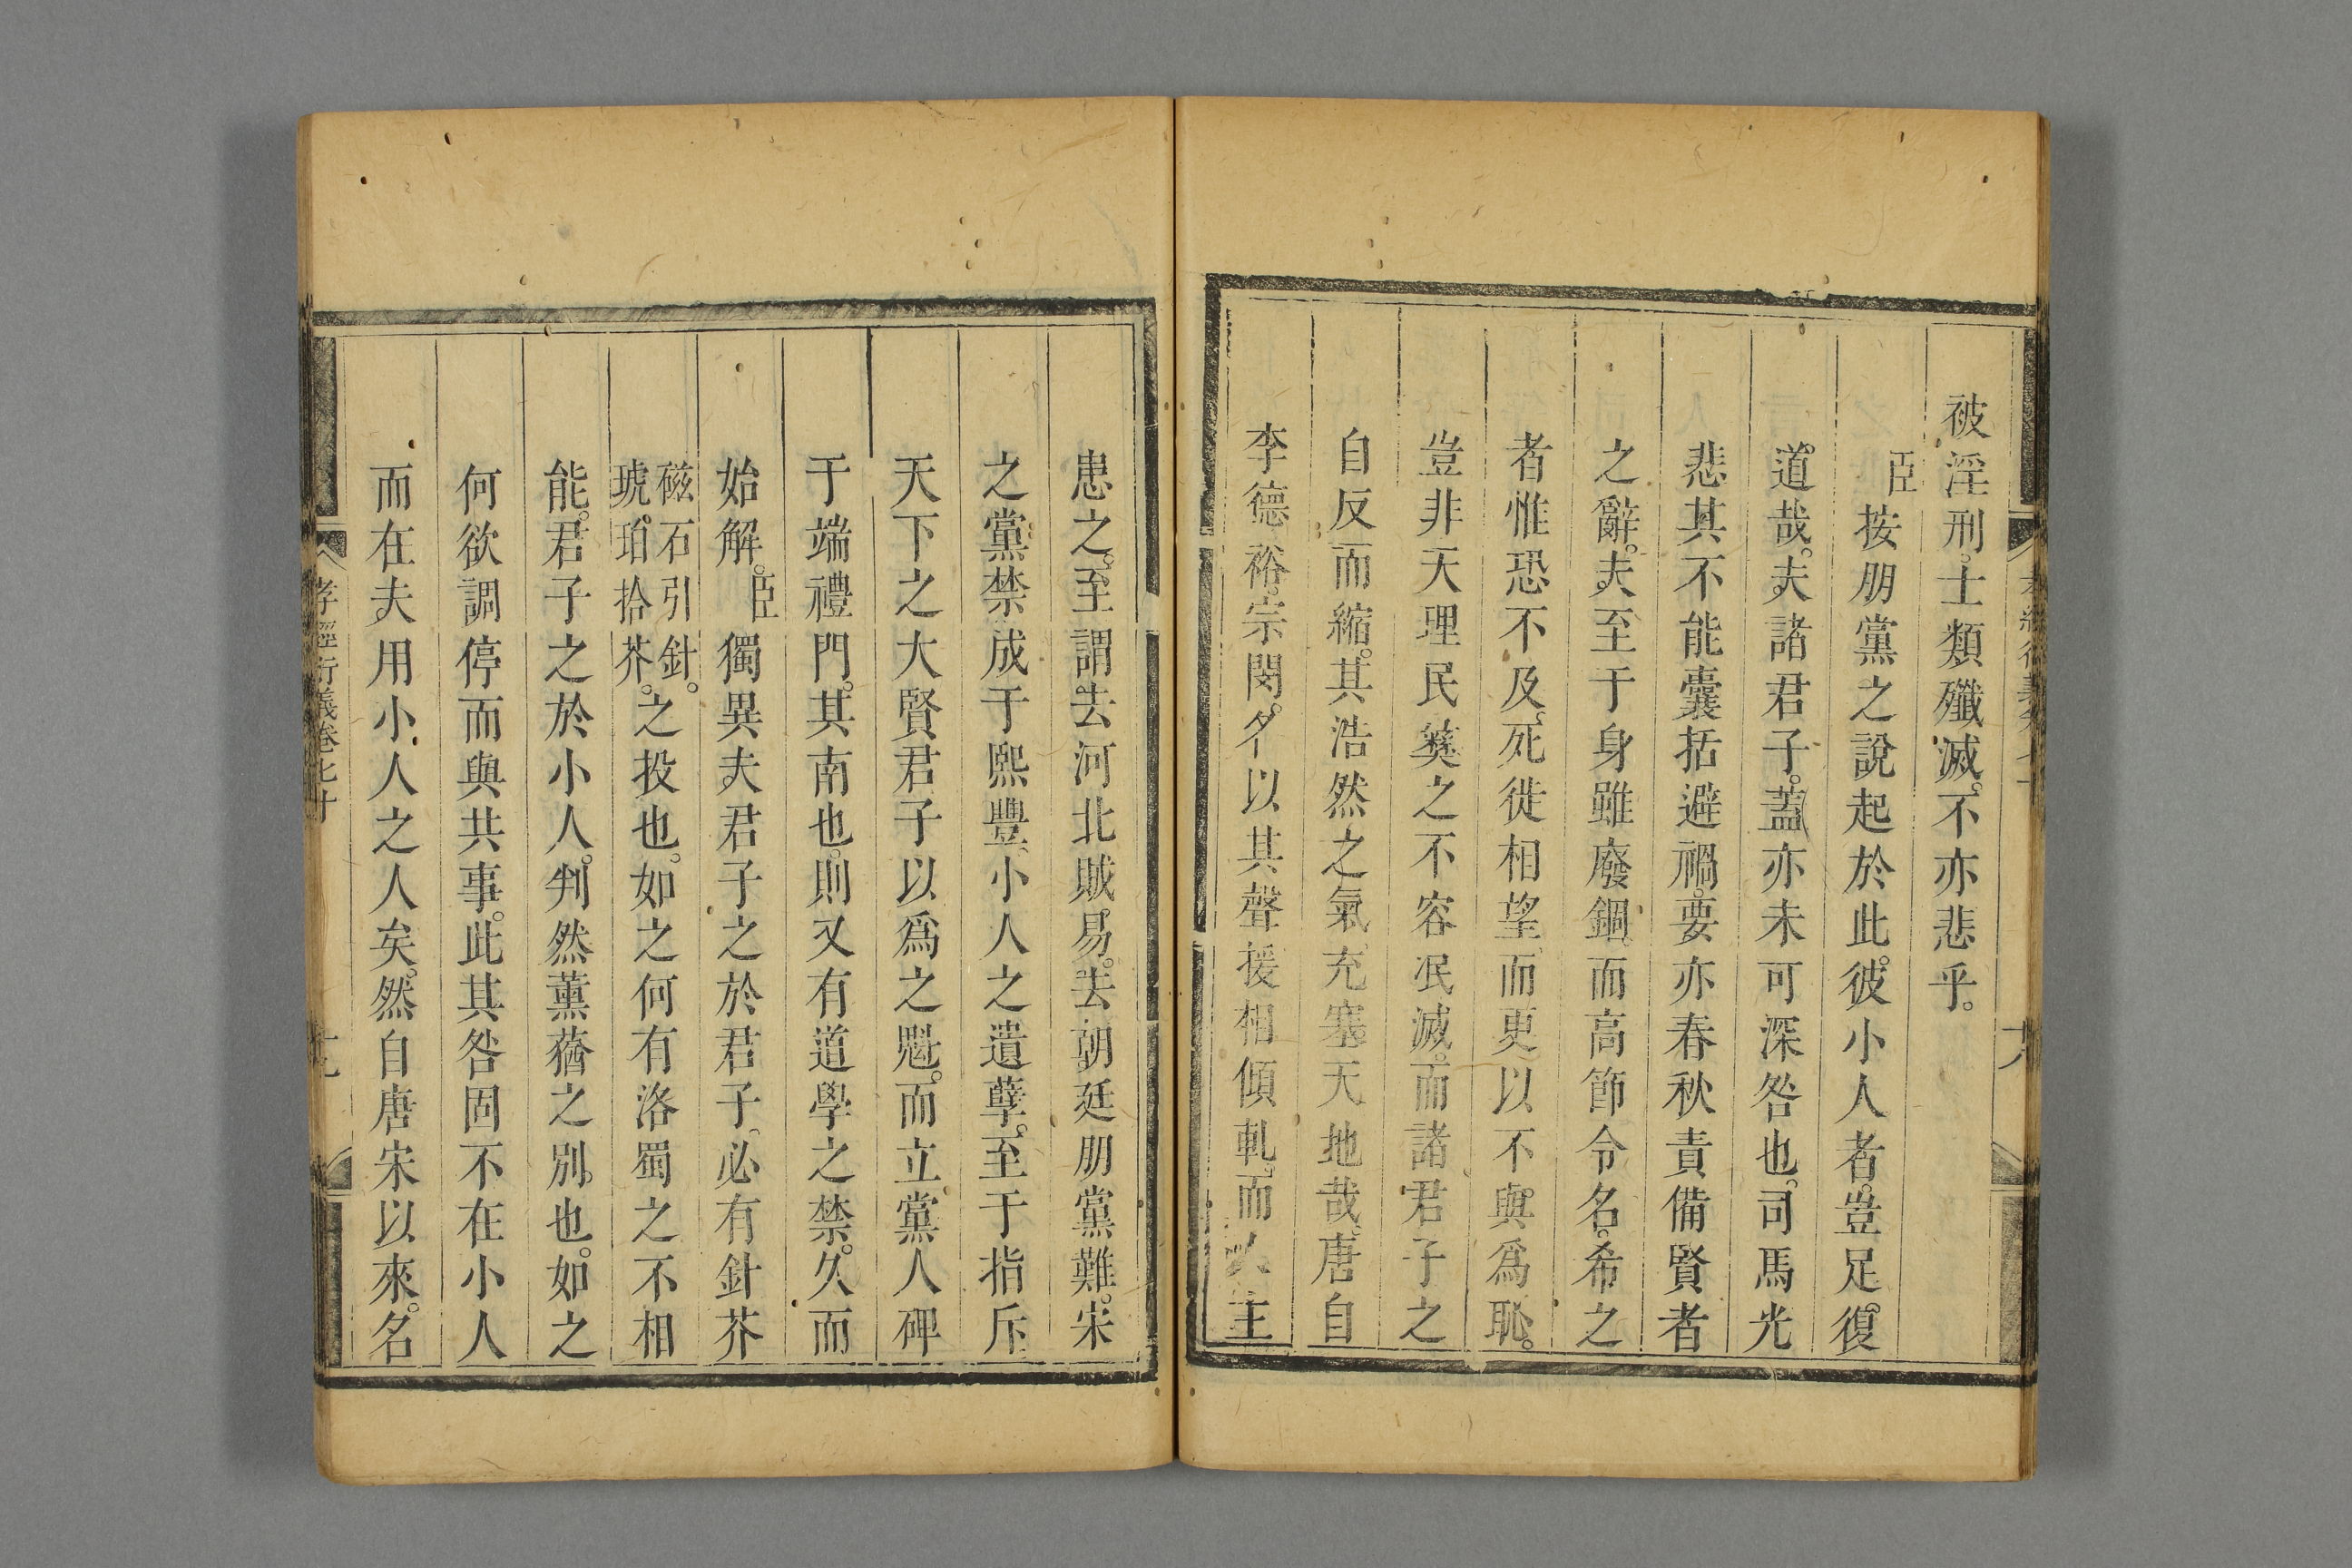 被淫刑。士類殲滅。不亦悲乎。
臣按朋黨之說起於此。彼小人者。豈足。復
道哉。夫諸君子。蓋亦未可深咎也。司馬光
悲其不能囊括避禍。要亦春秋責備賢者
之辭。夫至于身雖廢錮。而高節令名。希之
者惟恐不及。死徙相望。而更以不與爲恥。
豈非天理民彝之不容泯滅。而諸君子之
自反而縮。其浩然之氣充塞天地哉。唐自
李德裕。宗閔。各以其聲援相傾軋。而人主
患之。至謂去河北賊易。去朝廷朋黨難。宋
之黨禁成于熙豐小人之遺孽。至于指斥
天下之大賢君子以爲之魁。而立黨人碑
于端禮門。其南也。則又有道學之禁。久而
始解。臣獨異夫君子之於君子。必有針芥
磁石引針。
琥珀拾芥。
之投也。如之何有洛蜀之不相
能。君子之於小人。判然薰蕕之別也。如之
何欲調停而與共事。此其咎固不在小人
而在夫用小人之人矣。然自唐宋以來。名
孝經衍義卷七十